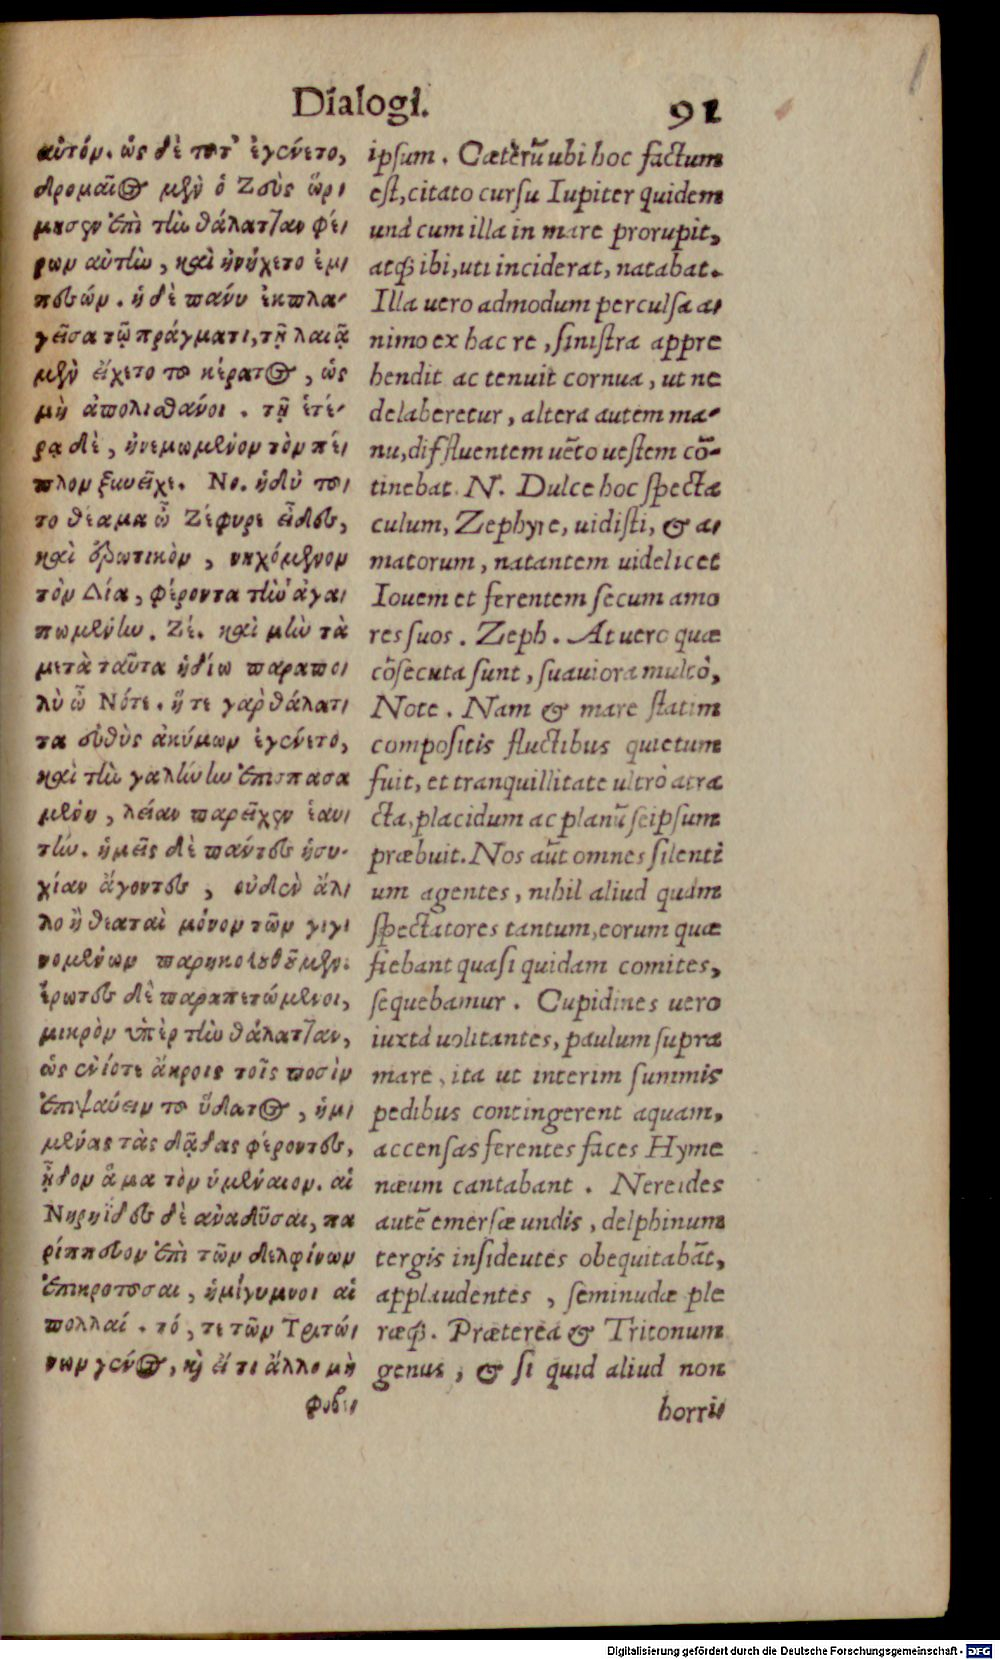 Dialogi. 91
αὐτόν. ὡς δὲ τοῦτ' ἐγένετο,
δρομαῖος μὲν ὁ Ζεὺς ὥρ‑
μησεν ἐπὶ τὴν θάλατταν φέ‑
ρων αὐτὴν, καὶ ἐνήχετο ἐμ‑
πεσών. ἡ δὲ πάνυ ἐκπλα‑
γεῖσα τῷ πράγματι, τῇ λαιᾷ
μὲν εἴχετο τοῦ κέρατος, ὡς
μὴ ἀπολισθάνοι. τῇ ἑτέ‑
ρᾳ δὲ, ἠνεμωμένον τὸν πέ‑
πλον ξυνεῖχε. Νο. ἡδὺ τοῦ‑
το θέαμα ὦ Ζέφυρε εἶδες,
καὶ ἐρωτικὸν, νηχόμενον
τὸν Δία, φέροντα τὴν ἀγα‑
πωμένην. Ζέ. καὶ μὴν τὰ
μετὰ ταῦτα ἡδίω παραπο‑
λὺ ὦ Νότε. ἥ τε γὰρ θάλατ‑
τα εὐθὺς ἀκύμων ἐγένετο,
καὶ τὴν γαλήνην ἐπισπασα
μένη, λείαν παρεῖχεν ἑαυ‑
τήν. ἡμεῖς δὲ πάντες ἡσυ‑
χίαν ἄγοντες, οὐδὲν ἄλ‑
λο ἢ θεαταὶ μόνον τῶν γιγ‑
νομένων παρηκολουθοῦμεν.
ἔρωτες δὲ παραπετώμενοι,
μικρὸν ὑπὲρ τὴν θάλατταν,
ὡς ἐνίοτε ἄκροις τοῖς ποσὶν
ἐπιψαύειν τοῦ ὕδατος, ἡμ‑
μένας τὰς δᾷδας φέροντες,
ᾖδον ἅμα τὸν ὑμέναιον. αἱ
Νηρηΐδες δὲ ἀναδῦσαι, πα
ρίππευον ἐπὶ τῶν δελφίνων
ἐπικροτοῦσαι, ἡμίγυμνοι αἱ
πολλαί. τό, τε τῶν Τριτώ‑
νων γένος, καὶ εἴ τι ἄλλο μὴ
φοβε‑
ipsum. Cæterũ ubi hoc factum
est, citato cursu Iupiter quidem
unà cum illa in mare prorupit,
atq; ibi, uti inciderat, natabat.
Illa uero admodum perculsa a‑
nimo ex hac re, sinistra appre
hendit ac tenuit cornua, ut ne
delaberetur, altera autem ma‑
nu, diffluentem uẽto uestem cõ‑
tinebat. N. Dulce hoc specta
culum, Zephyre, uidisti, & a‑
matorum, natantem uidelicet
Iouem et ferentem secum amo
res suos. Zeph. At uero quæ
cõsecuta sunt, suauiora multò,
Note. Nam & mare statim
compositis fluctibus quietum
fuit, et tranquillitate ultrò atra
cta, placidum ac planũ seipsum
præbuit. Nos aũt omnes silenti
um agentes, nihil aliud quàm
spectatores tantum, eorum quæ
fiebant quasi quidam comites,
sequebamur. Cupidines uero
iuxtà uolitantes, paulum supra
mare, ita ut interim summis
pedibus contingerent aquam,
accensas ferentes faces Hyme
næum cantabant. Nereides
autẽ emersæ undis, delphinum
tergis insidentes obequitabãt,
applaudentes, seminudæ ple
ræq;. Præterea & Tritonum
genus, & si quid aliud non
horri‑
Digitalisierung gefördert durch die Deutsche Forschungsgemeinschaft - DFG